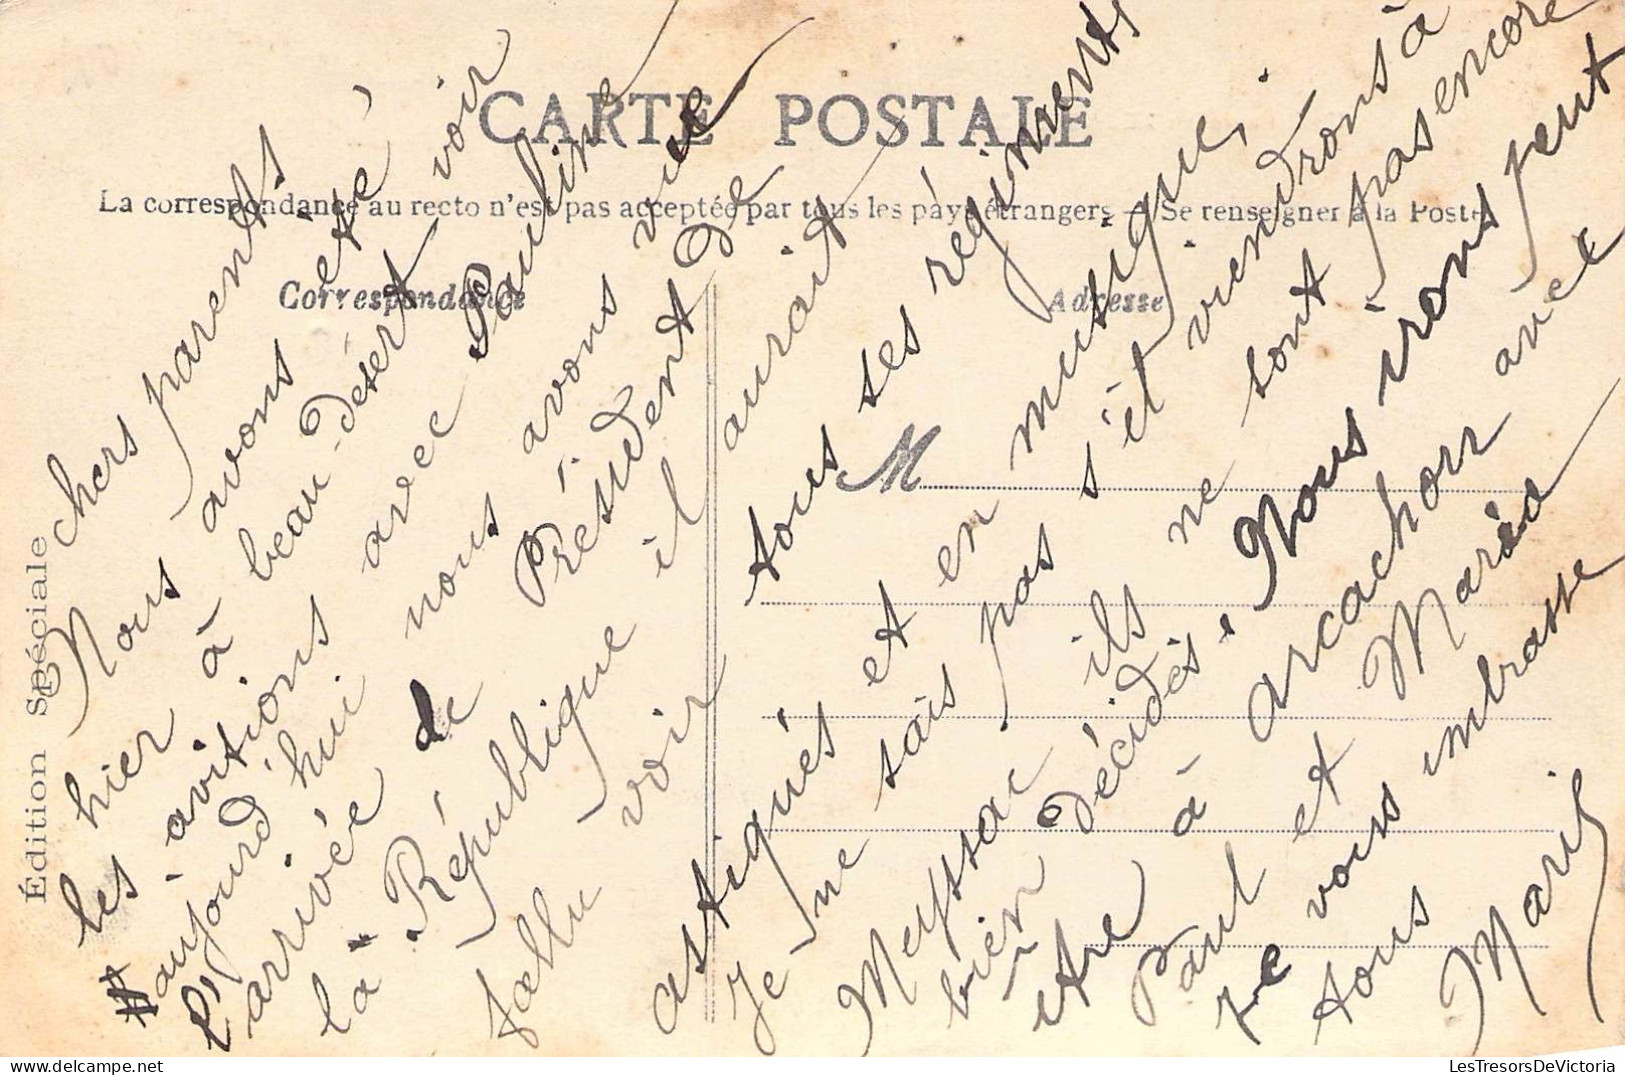 CARTE POSTALE
La correspondance au recto n'est pas acceptée par tous les pays étrangers - Se renseigner à la Poste
Correspondance
Adresse
M
Édition Spéciale
chers parents
Nous avons été
hier à beau-désert voir
les avitions avec Pauline
aujourd'hui nous avons vue
l'arrivée de Président de
la République il aurait
fallu voir tous ses régiments
astiqués et en musique;
Je ne sais pas s'ét viendrons à
Meyssac ils ne sont pas encore
bien décidés. Nous irons peut
etre à arcachon avec
Paul et Maria
Je vous embrasse
tous
Marie
LesTresorsDeVictoria